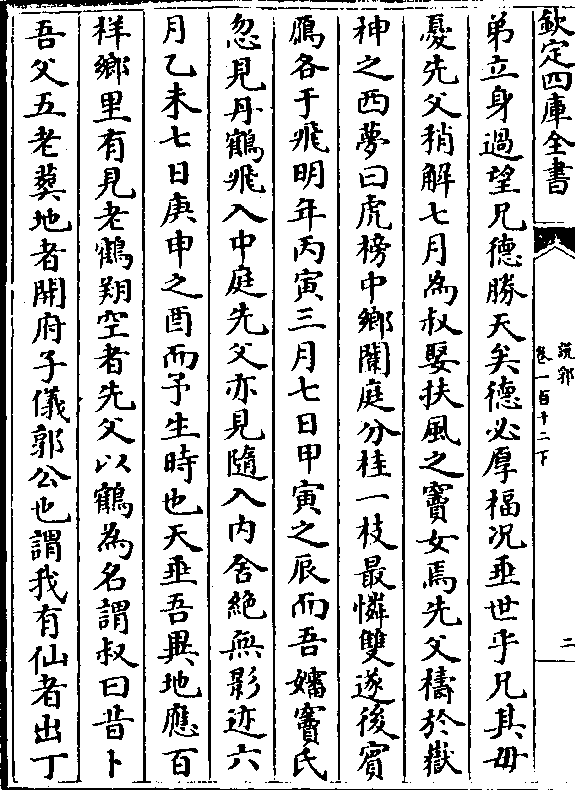 欽定四庫全書
説郛
卷一百十二下
二
弟立身過望兄德勝天矣德必厚福况垂世乎兄其毋
憂先父稍解七月為叔娶扶風之竇女焉先父禱於嶽
神之西夢曰虎榜中鄉闈庭分桂一枝最憐雙遂後賓
鴈各于飛明年丙寅三月七日甲寅之辰而吾嬸竇氏
忽見丹鶴飛入中庭先父亦見隨入内舍絶無影迹六
月乙未七日庚申之酉而予生時也天垂吾異地應百
祥鄉里有見老鶴翔空者先父以鶴為名謂叔曰昔卜
吾父五老葬地者開府子儀郭公也謂我有仙者出丁